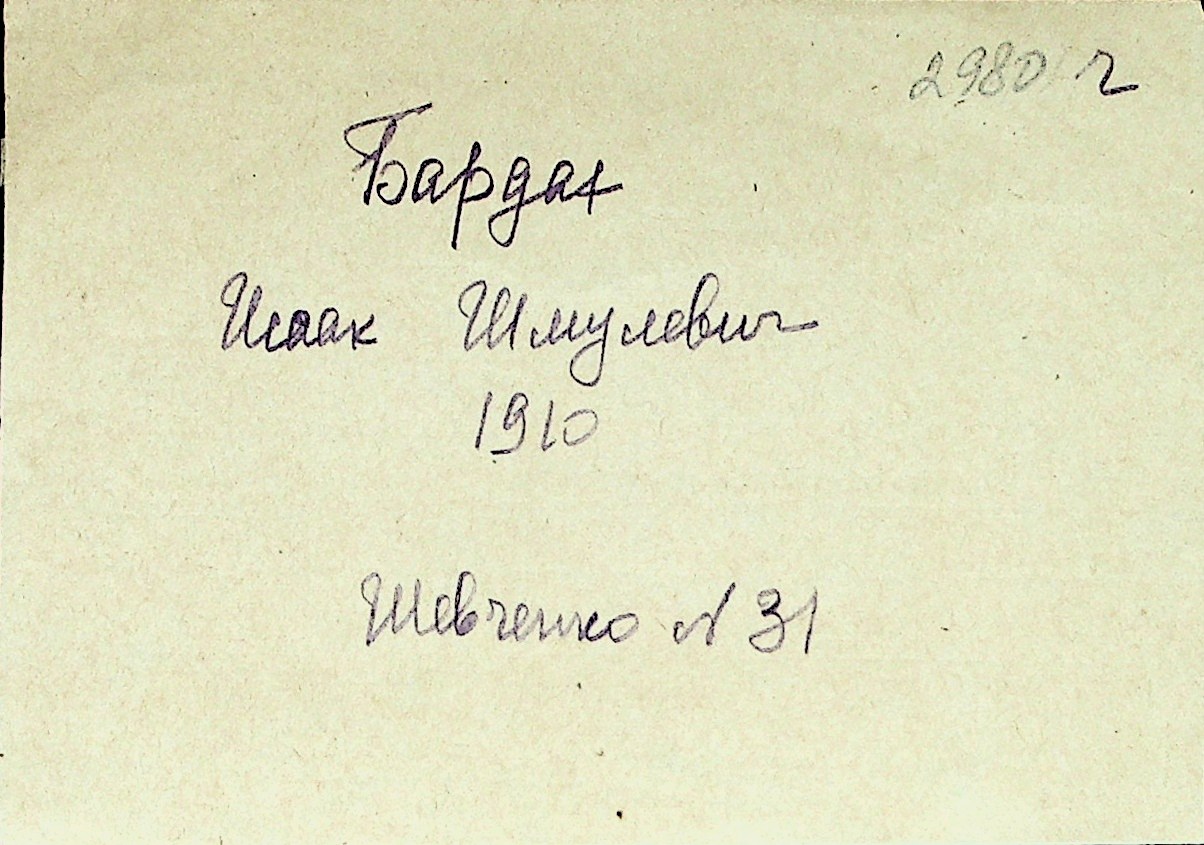 2980 г
Бардах
Исаак Шмулевич
1910
Шевченко N 31